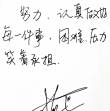 努力、认真面对
每一件事，困难、压力
笑着承担。